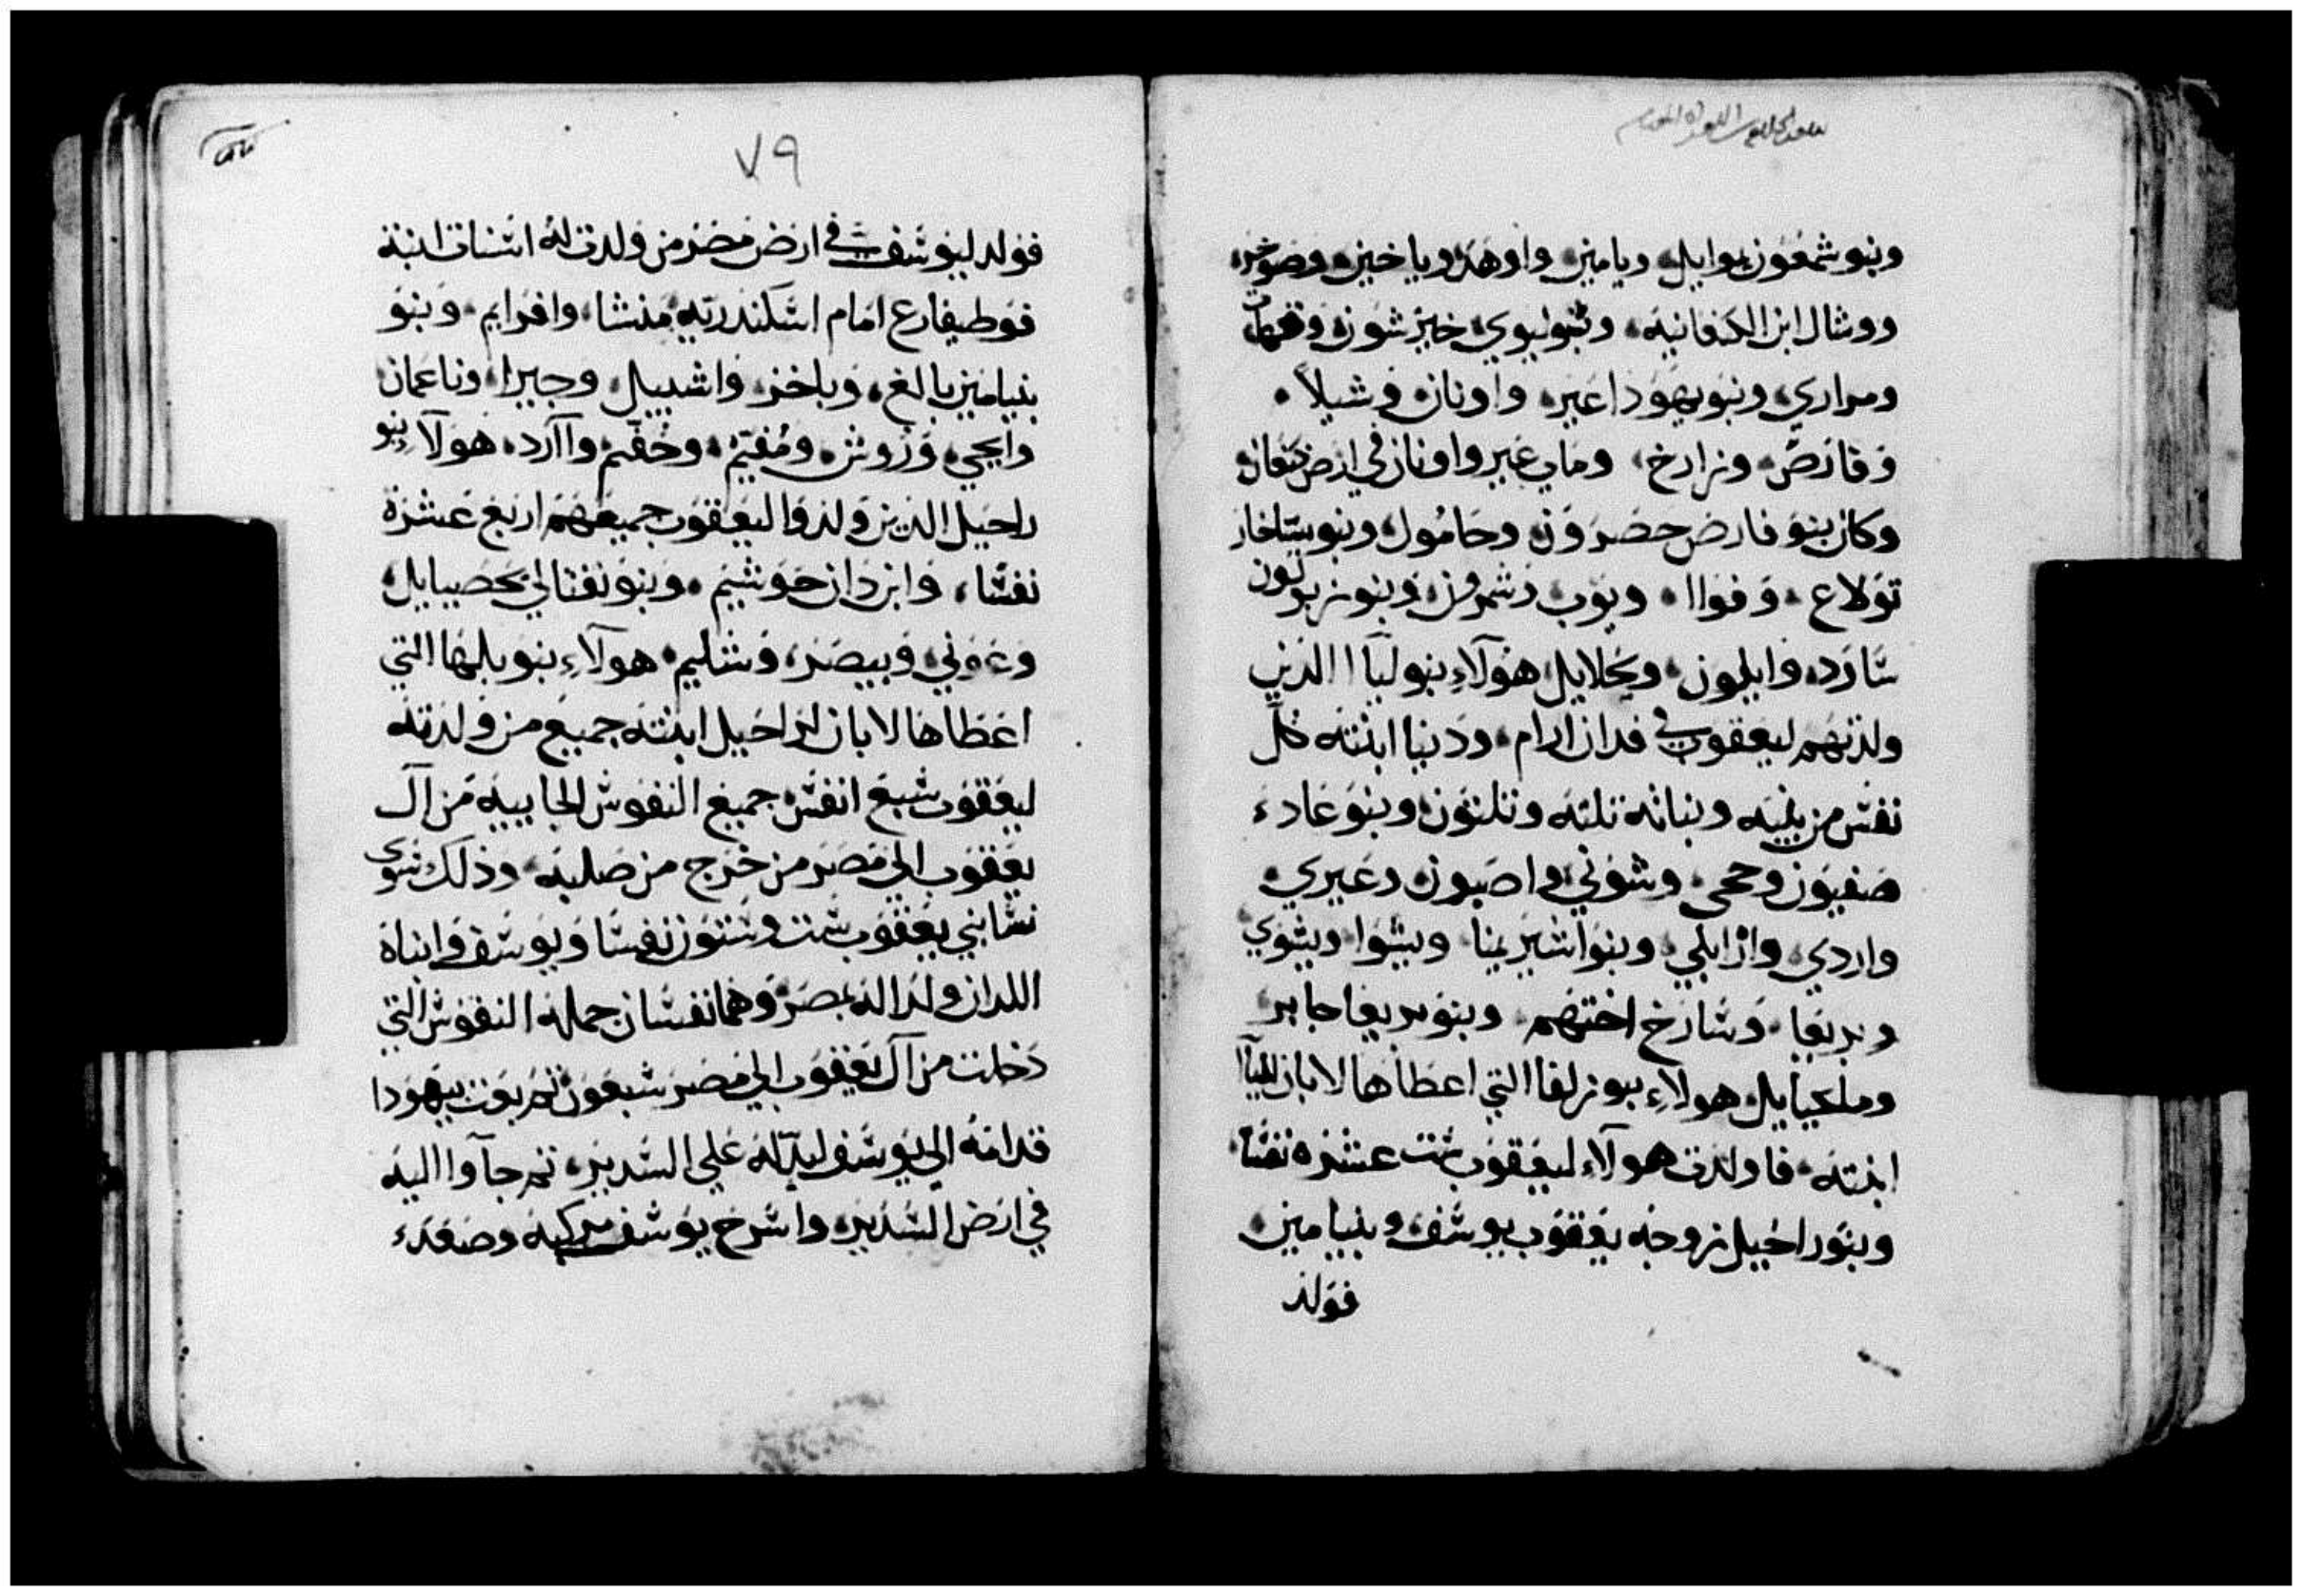 وبنو شمعون يموايل ويامين واوهذ وياخين وصوخر
ووشال ابن الكنعانية وبنو ليوي خيرشون وقهات
ومراري وبنو يهوذا عير واونان وشيلا
وفارص وزارخ ومات عير واونان في ارض كنعان
وكان بنو فارص حصرون وحامول وبنو يساخار
تولاع وفواا ويوب وشمرون وبنو زبولون
سارد وايلون ويحلايل هولاء بنو ليآا الذين
ولدتهم ليعقوب في فدان ارام ودينا ابنته كل
نفس من بنيه وبناته تلته وتلتون وبنو غاد
صفيون وحجي وشوني واصبون وعيري
واردي وارايلي وبنو اشير يمنا ويشوا ويشوي
وبريعا وسارخ اختهم وبنو بريعا حابر
وملكيايل هولاء بنو زلفا التي اعطاها لابان لليآا
ابنته فاولدت هولاء ليعقوب ست عشره نفسا
وبنو راحيل زوجه يعقوب يوسف وبنيامين
فولد
٧٩
فولد ليوسف في ارض مصر من ولدت له اسنات ابنة
فوطيفارع امام اسكندرية منشا وافرايم وبنو
بنيامين بالع وباخر واشبيل وجيرا وناعمان
وايحي وروش ومفيم وحفيم وآارد هولاء بنو
راحيل الذين ولدوا ليعقوب جميعهم اربع عشرة
نفسا وابن دان حوشيم وبنو نفتالي يحصيايل
وغوني وييصر وشليم هولاء بنو بلها التي
اعطاها لابان لراحيل ابنته جميع من ولدته
ليعقوب سبع انفس جميع النفوس الجاييه من آل
يعقوب الي مصر من خرج من صلبه وذلك سوي
نسا بني يعقوب ست وستون نفسا ويوسف وابناه
اللدان ولدا له بمصر وهما نفسان جملة النفوس التي
دخلت من آل يعقوب الي مصر سبعون ثم بعت بيهودا
قدامه الي يوسف ليدله علي السدير ثم جآوا اليه
في ارض السدير واسرج يوسف مركبه وصعد